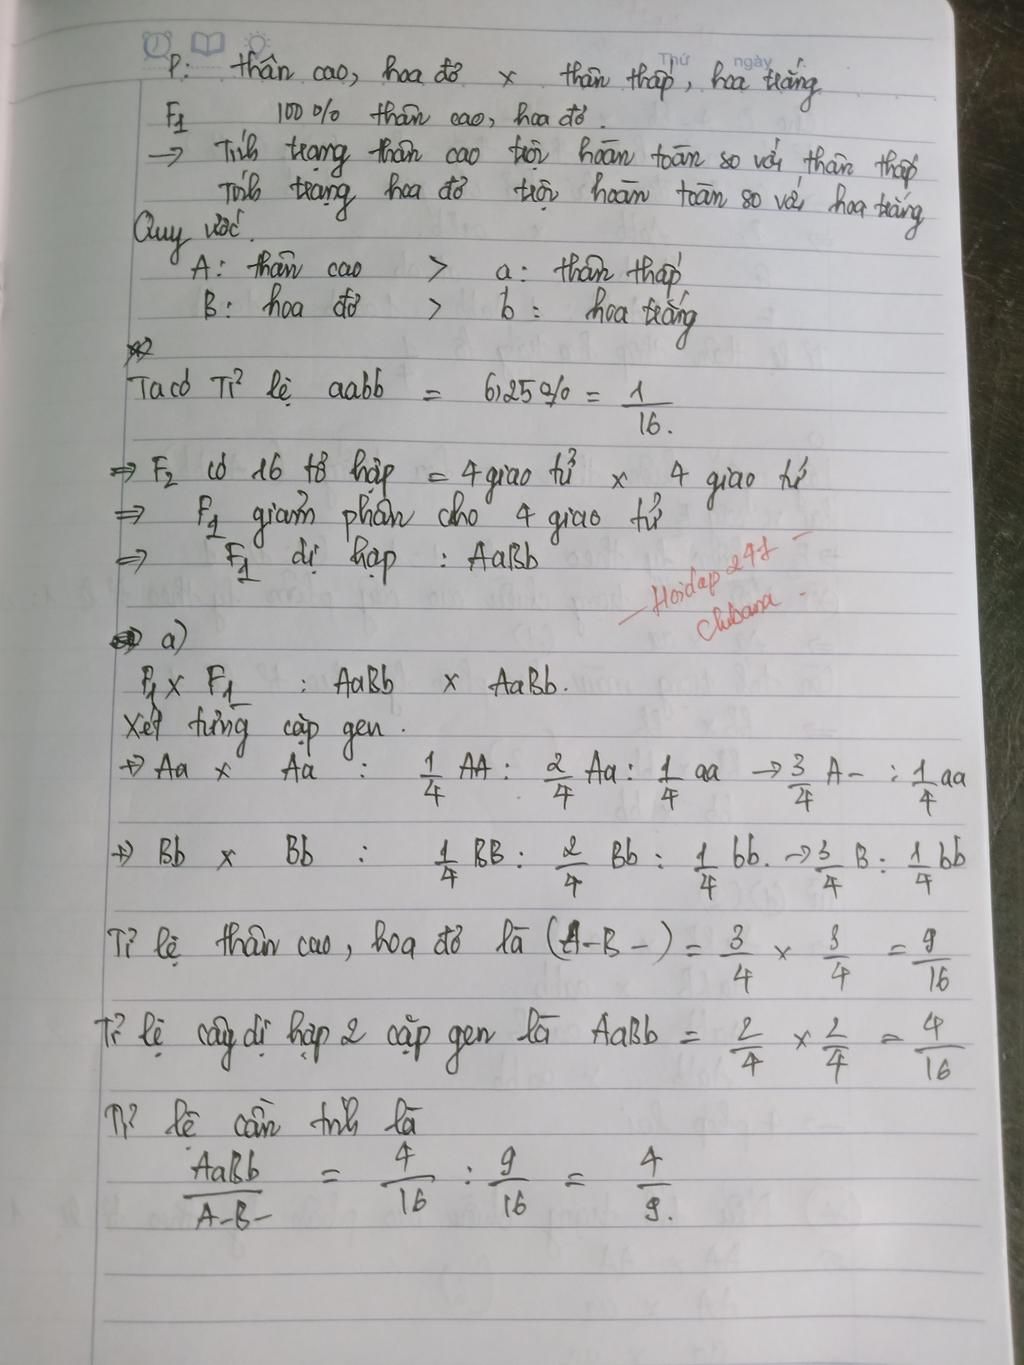 Thứ ngày
P: thân cao, hoa đỏ x thân thấp, hoa trắng
F1 100% thân cao, hoa đỏ.
→ Tính trạng thân cao trội hoàn toàn so với thân thấp
Tính trạng hoa đỏ trội hoàn toàn so với hoa trắng
Quy ước.
A: thân cao > a: thân thấp
B: hoa đỏ > b: hoa trắng
Ta có Tỉ lệ aabb = 6,25% = 1/16.
⇒ F2 có 16 tổ hợp = 4 giao tử x 4 giao tử
⇒ F1 giảm phân cho 4 giao tử
⇒ F1 dị hợp : AaBb
- Hoidap247 -
a)
F1 x F1 : AaBb x AaBb.
Xét từng cặp gen.
+> Aa x Aa : 1/4 AA : 2/4 Aa : 1/4 aa → 3/4 A- : 1/4 aa
+> Bb x Bb : 1/4 BB : 2/4 Bb : 1/4 bb. → 3/4 B : 1/4 bb
Tỉ lệ thân cao, hoa đỏ là (A-B-) = 3/4 x 3/4 = 9/16
Tỉ lệ cây dị hợp 2 cặp gen là AaBb = 2/4 x 2/4 = 4/16
Tỉ lệ cần tính là
AaBb/A-B- = 4/16 : 9/16 = 4/9.